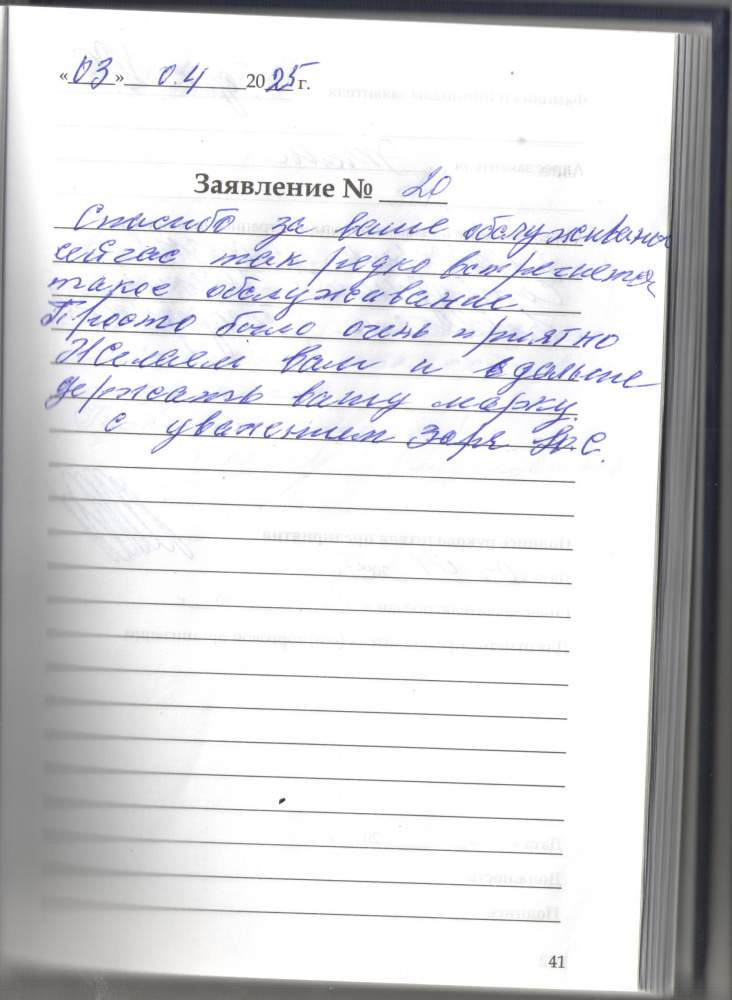 «03» 04 2025 г.
Заявление № 20
Спасибо за ваше обслуживание
сейчас так редко встречается
такое обслужавание.
Просто было очень приятно
Желаем вам и дальше
держать вашу марку.
с уважением Заря
41